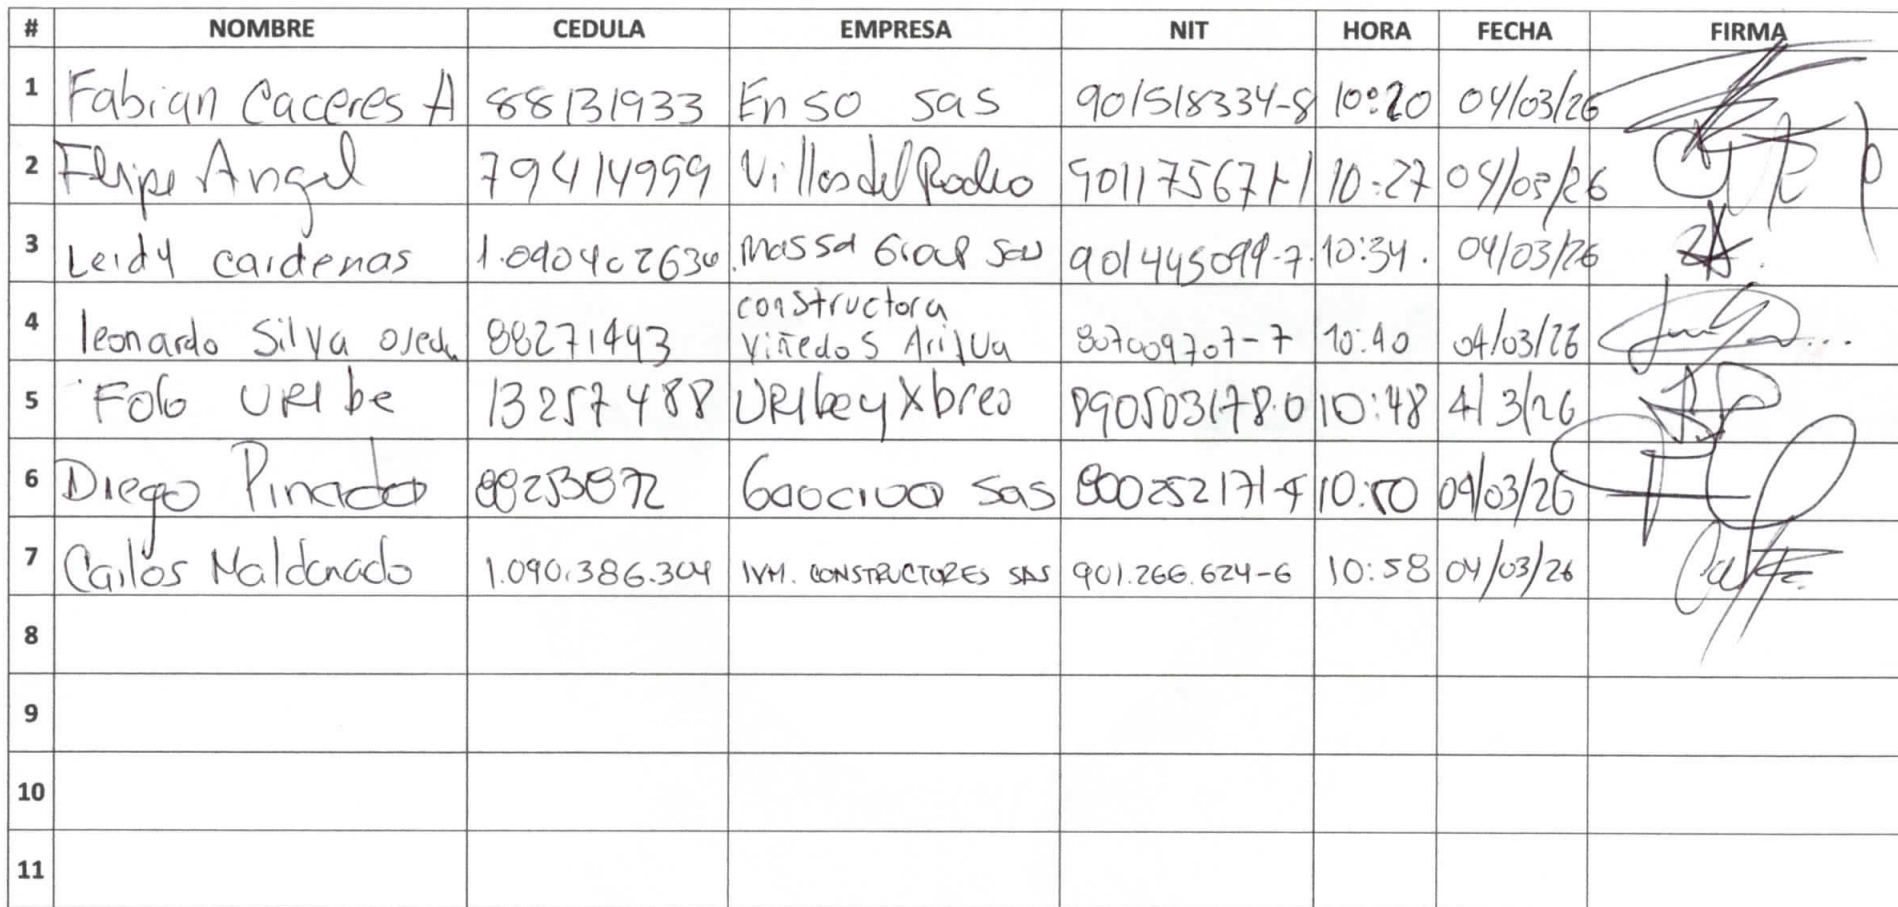 # NOMBRE CEDULA EMPRESA NIT HORA FECHA FIRMA
1 Fabian Caceres A 88131933 Enso sas 901518334-8 10:20 04/03/26
2 Felipe Angel 79414999 Villas del Rodeo 901175671-1 10:27 04/03/26
3 Leidy cardenas 1.090402630 Massa Group sas 901445099-7 10:34. 04/03/26
constructora
4 leonardo Silva 88271443 Viñedos 807009707-7 10:40 04/03/26
5 Folo URIbe 13257488 URIbe y Xbreo 890503178.0 10:48 4/3/26
6 Diego 88253872 sas 10:50 04/03/26
7 Carlos Maldonado 1.090.386.304 IVM. CONSTRUCTORES SAS 901.266.624-6 10:58 04/03/26
8
9
10
11